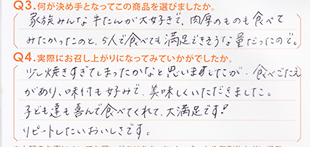 Q3.何が決め手となってこの商品を選びましたか。
家族みんな牛たんが大好きで、肉厚のものも食べて
みたかったのと、5人で食べても満足できそうな量だったので。
Q4.実際にお召し上がりになってみていかがでしたか。
少し焼きすぎてしまったかなと思いましたが、食べごたえ
があり、味付も好みで、美味しくいただきました。
子ども達も喜んで食べてくれて、大満足です!
リピートしたいおいしさです。